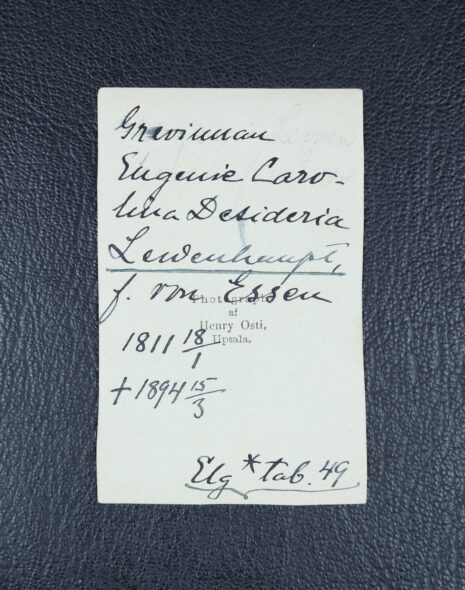 Grevinnan
Eugenie Caro-
lina Desideria
Lewenhaupt,
f. von Essen
Photographi
af
Henry Osti,
Upsala.
1811 18/1
† 1894 15/3
Elg * tab. 49